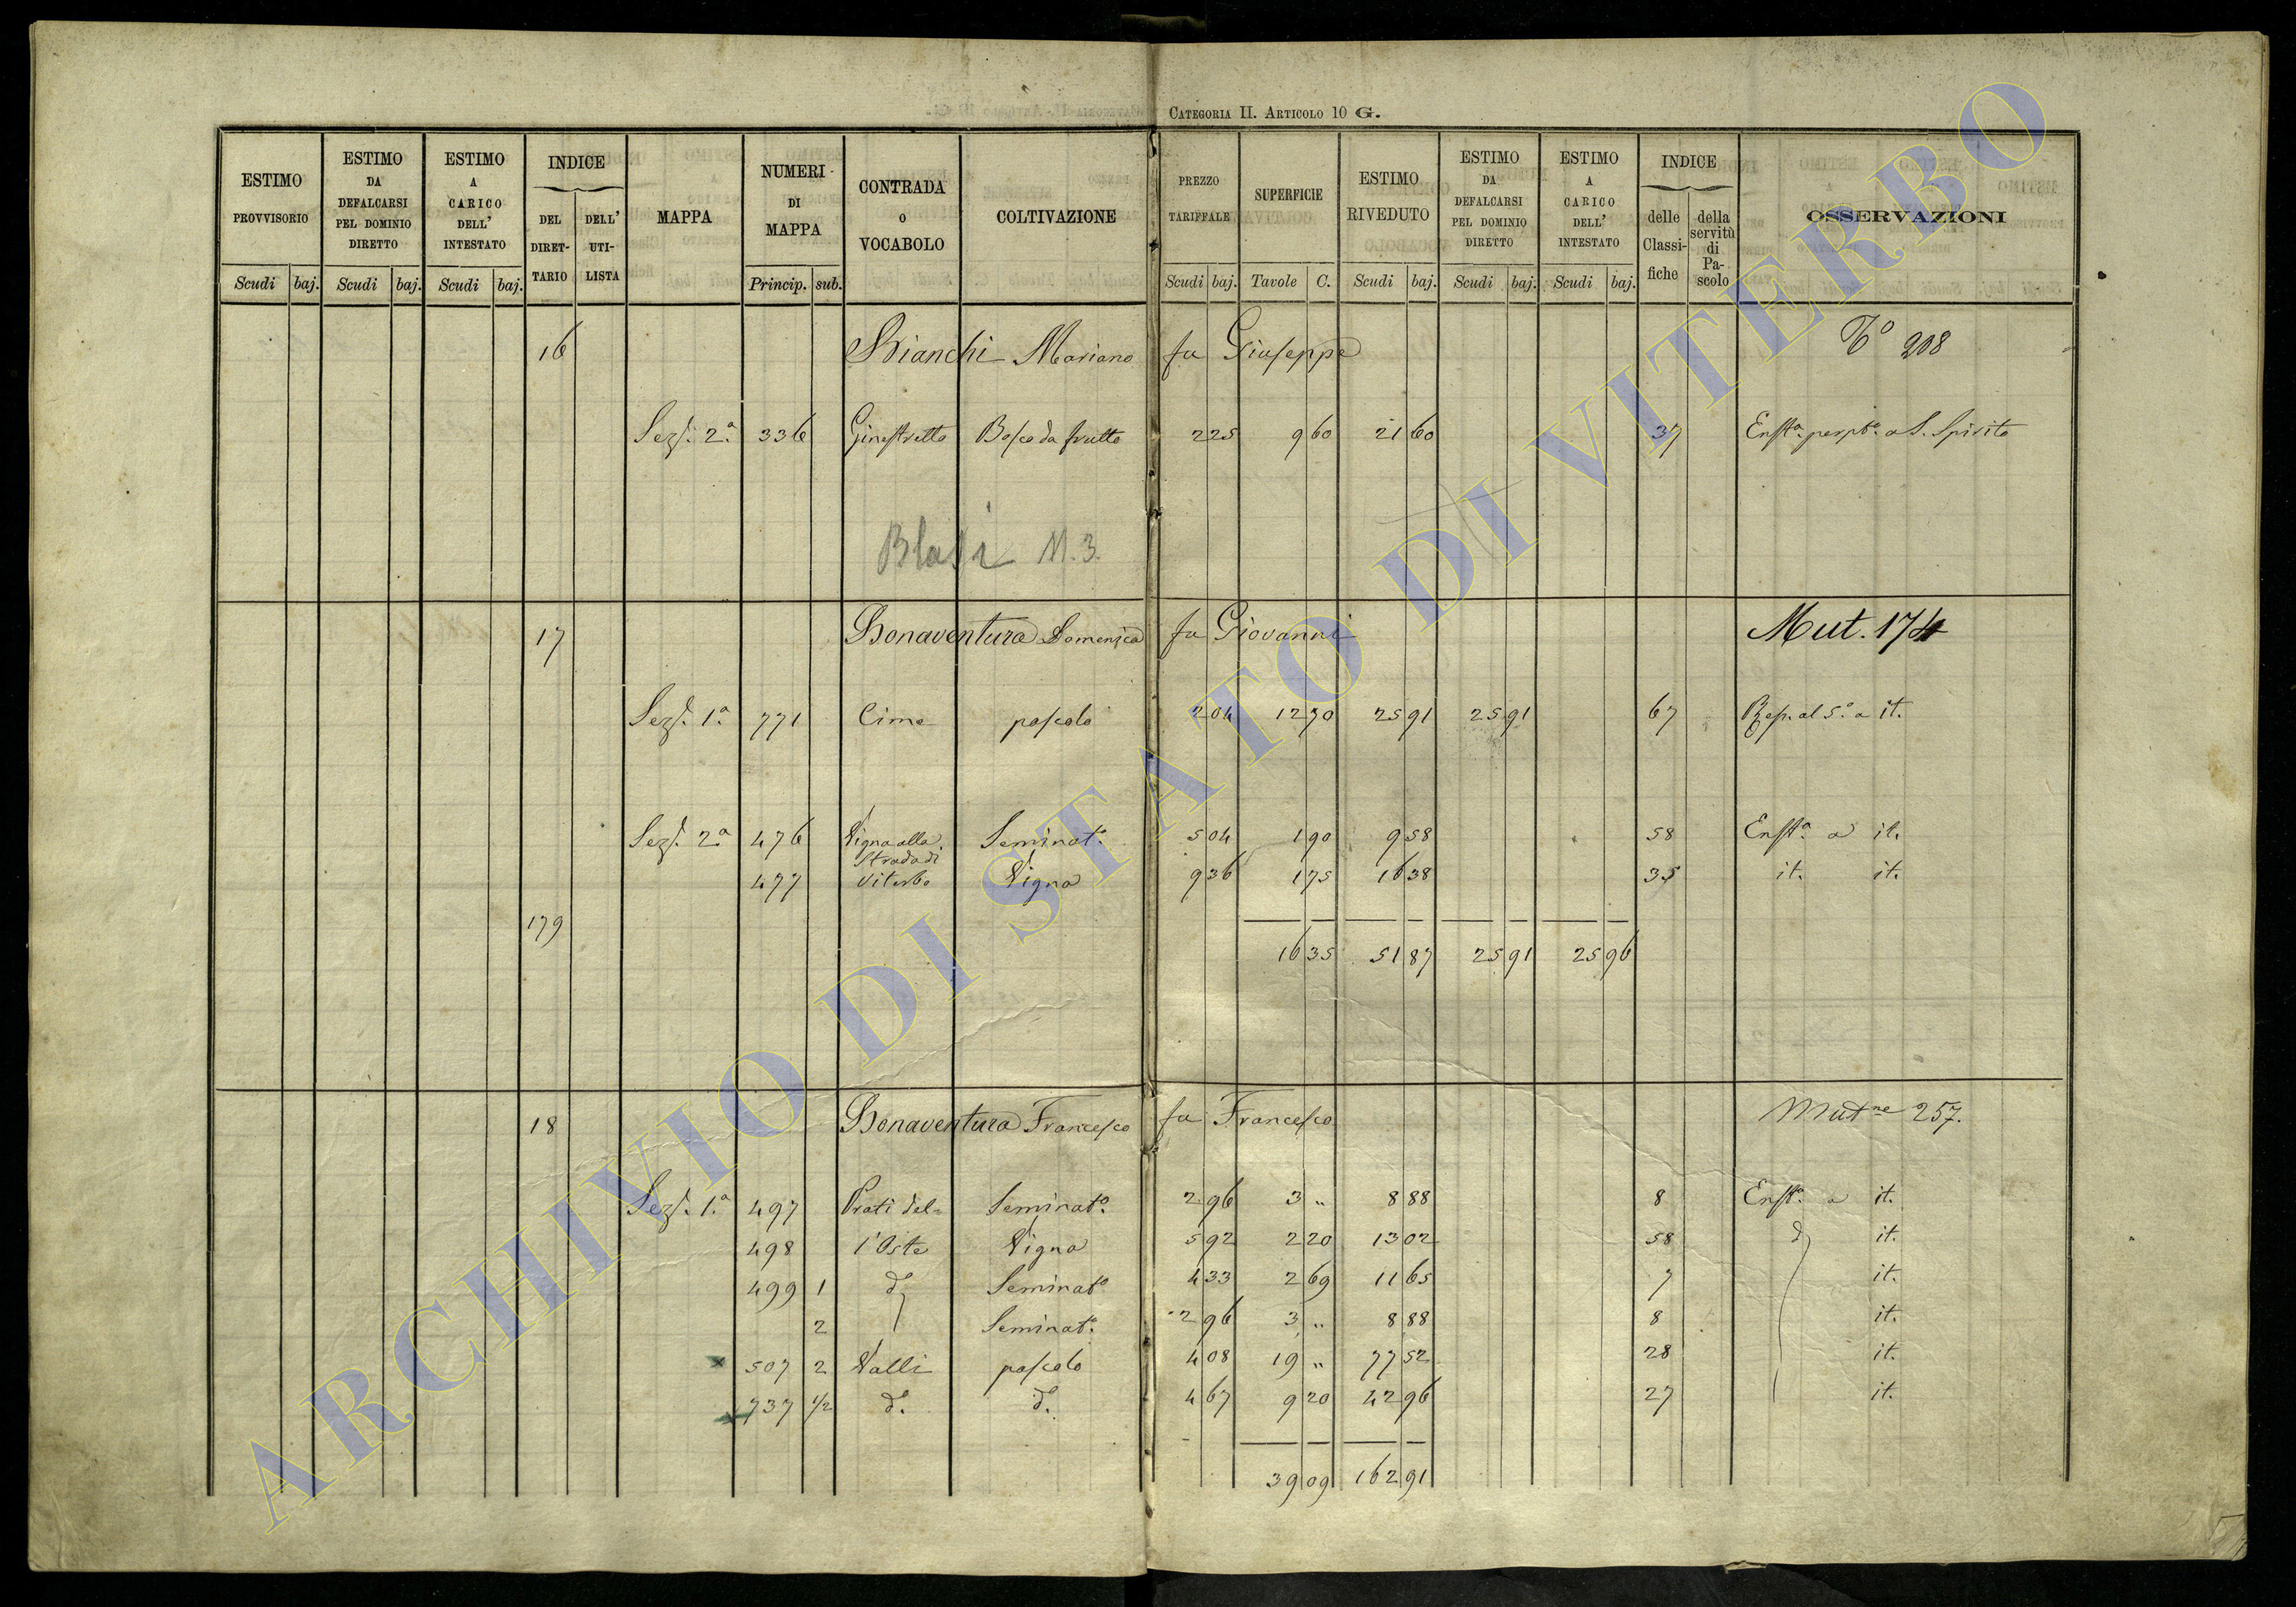 CATEGORIA II. ARTICOLO 10 G.
ESTIMO PROVVISORIO Scudi baj.
ESTIMO DA DEFALCARSI PEL DOMINIO DIRETTO Scudi baj.
ESTIMO A CARICO DELL' INTESTATO Scudi baj.
INDICE DEL DIRET-TARIO DELL' UTI-LISTA
MAPPA
NUMERI DI MAPPA Princip. sub.
CONTRADA O VOCABOLO
COLTIVAZIONE
PREZZO TARIFFALE Scudi baj.
SUPERFICIE Tavole C.
ESTIMO RIVEDUTO Scudi baj.
ESTIMO DA DEFALCARSI PEL DOMINIO DIRETTO Scudi baj.
ESTIMO A CARICO DELL' INTESTATO Scudi baj.
INDICE delle Classi-fiche della servitù di Pa-scolo
OSSERVAZIONI
16 Bianchi Mariano fu Giuseppe 208
Sez. 2ª 336 Ginestretto Bosco da frutto 2 25 9 60 21 60 37 Enfta. perpta. a S. Spirito
Blasi N. 3.
17 Bonaventura Domenica fu Giovanni Mut. 174
Sez. 1ª 771 Cima pascolo 2 04 12 70 25 91 25 91 67 Risp. al 5º a it.
Sez. 2ª 476 Vigna alla Seminato 5 04 1 90 9 58 58 Enfta. a it.
Strada di
477 Viterbo Vigna 9 36 1 75 16 38 35 it. it.
179
16 35 51 87 25 91 25 96
18 Bonaventura Francesco fu Francesco Mutne 257.
Sez. 1ª 497 Prati del= Seminato 2 96 3 „ 8 88 8 Enfta. a it.
498 l'Oste Vigna 5 92 2 20 13 02 58 d it.
499 1 dº Seminato 4 33 2 69 11 65 7 it.
2 Seminato 2 96 3 „ 8 88 8 it.
507 2 Valli pascolo 4 08 19 „ 77 52 28 it.
737 1/2 dº. dº. 4 67 9 20 42 96 27 it.
39 09 162 91
ARCHIVIO DI STATO DI VITERBO